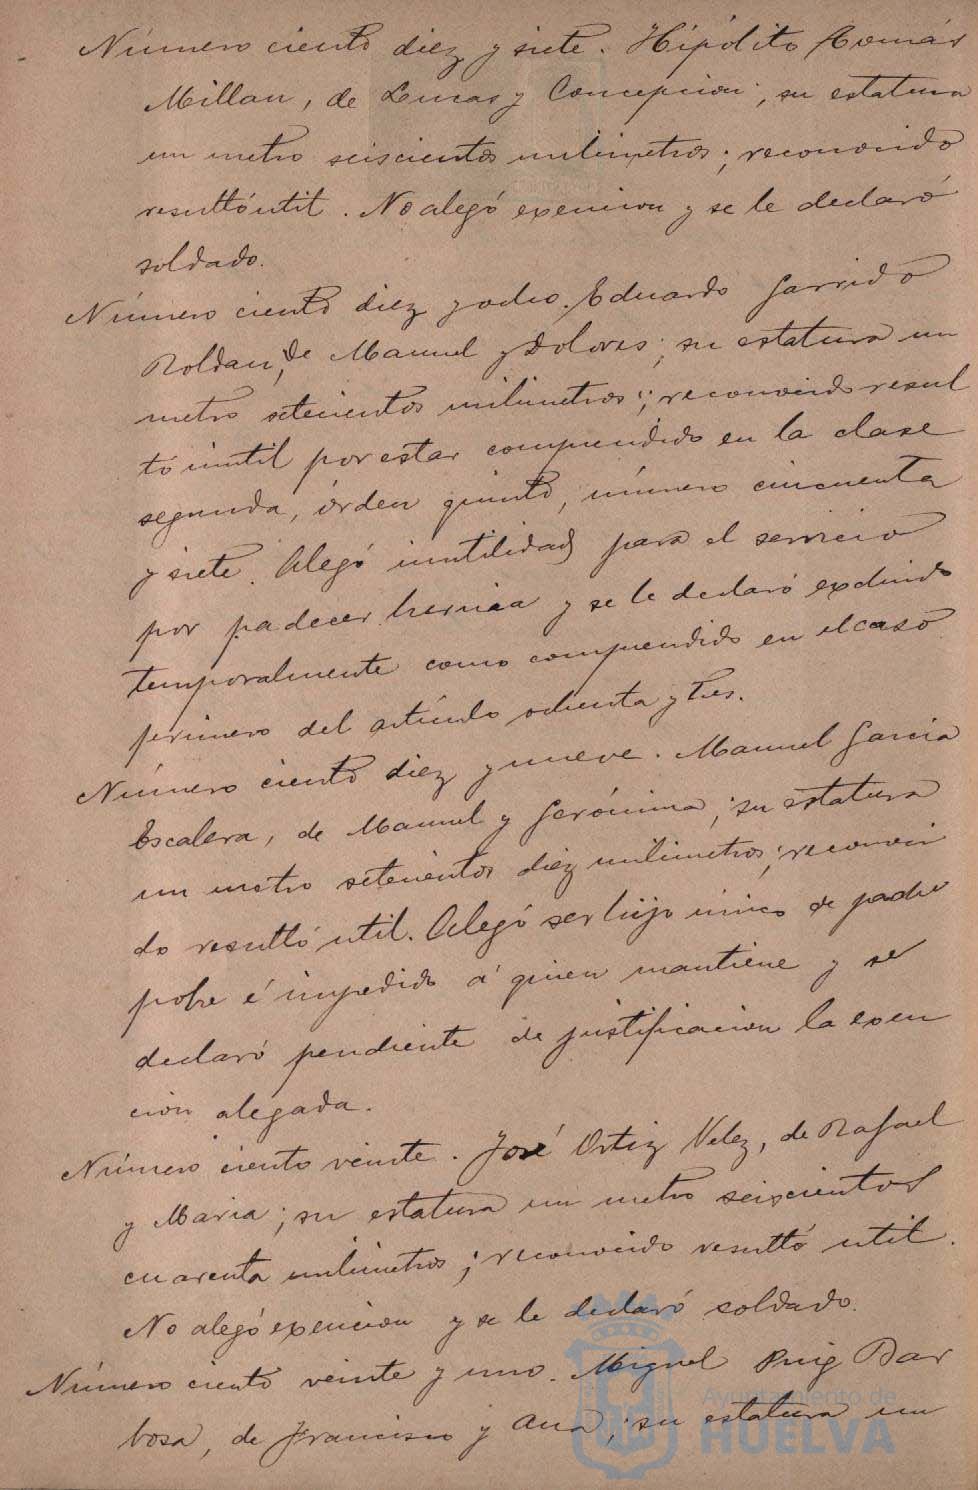 Número ciento diez y siete. Hipólito Tomás
Millan, de Lucas y Concepcion; su estatura
un metro seiscientos milimetros; reconocido
resultó util. No alegó exencion y se le declaró
soldado.
Número ciento diez y ocho. Eduardo Garrido
Roldan, de Manuel y Dolores; su estatura un
metro setecientos milimetros; reconocido resul
tó inutil por estar comprendido en la clase
segunda, órden quinto, número cincuenta
y siete. Alegó inutilidad para el servicio
por padecer hernia y se le declaró excluido
temporalmente como comprendido en el caso
primero del artículo ochenta y tres.
Número ciento diez y nueve. Manuel García
Escalera, de Manuel y Gerónima; su estatura
un metro setecientos diez milimetros; reconoci
do resultó util. Alegó ser hijo único de padre
pobre é impedido á quien mantiene y se
declaró pendiente de justificacion la exen
cion alegada.
Número ciento veinte. José Ortiz Velez, de Rafael
y Maria; su estatura un metro seiscientos
cuarenta milimetros; reconocido resultó util.
No alegó exencion y se le declaró soldado.
Número ciento veinte y uno. Miguel Puig Bar
bosa, de Francisco y Ana; su estatura un
Ayuntamiento de
HUELVA